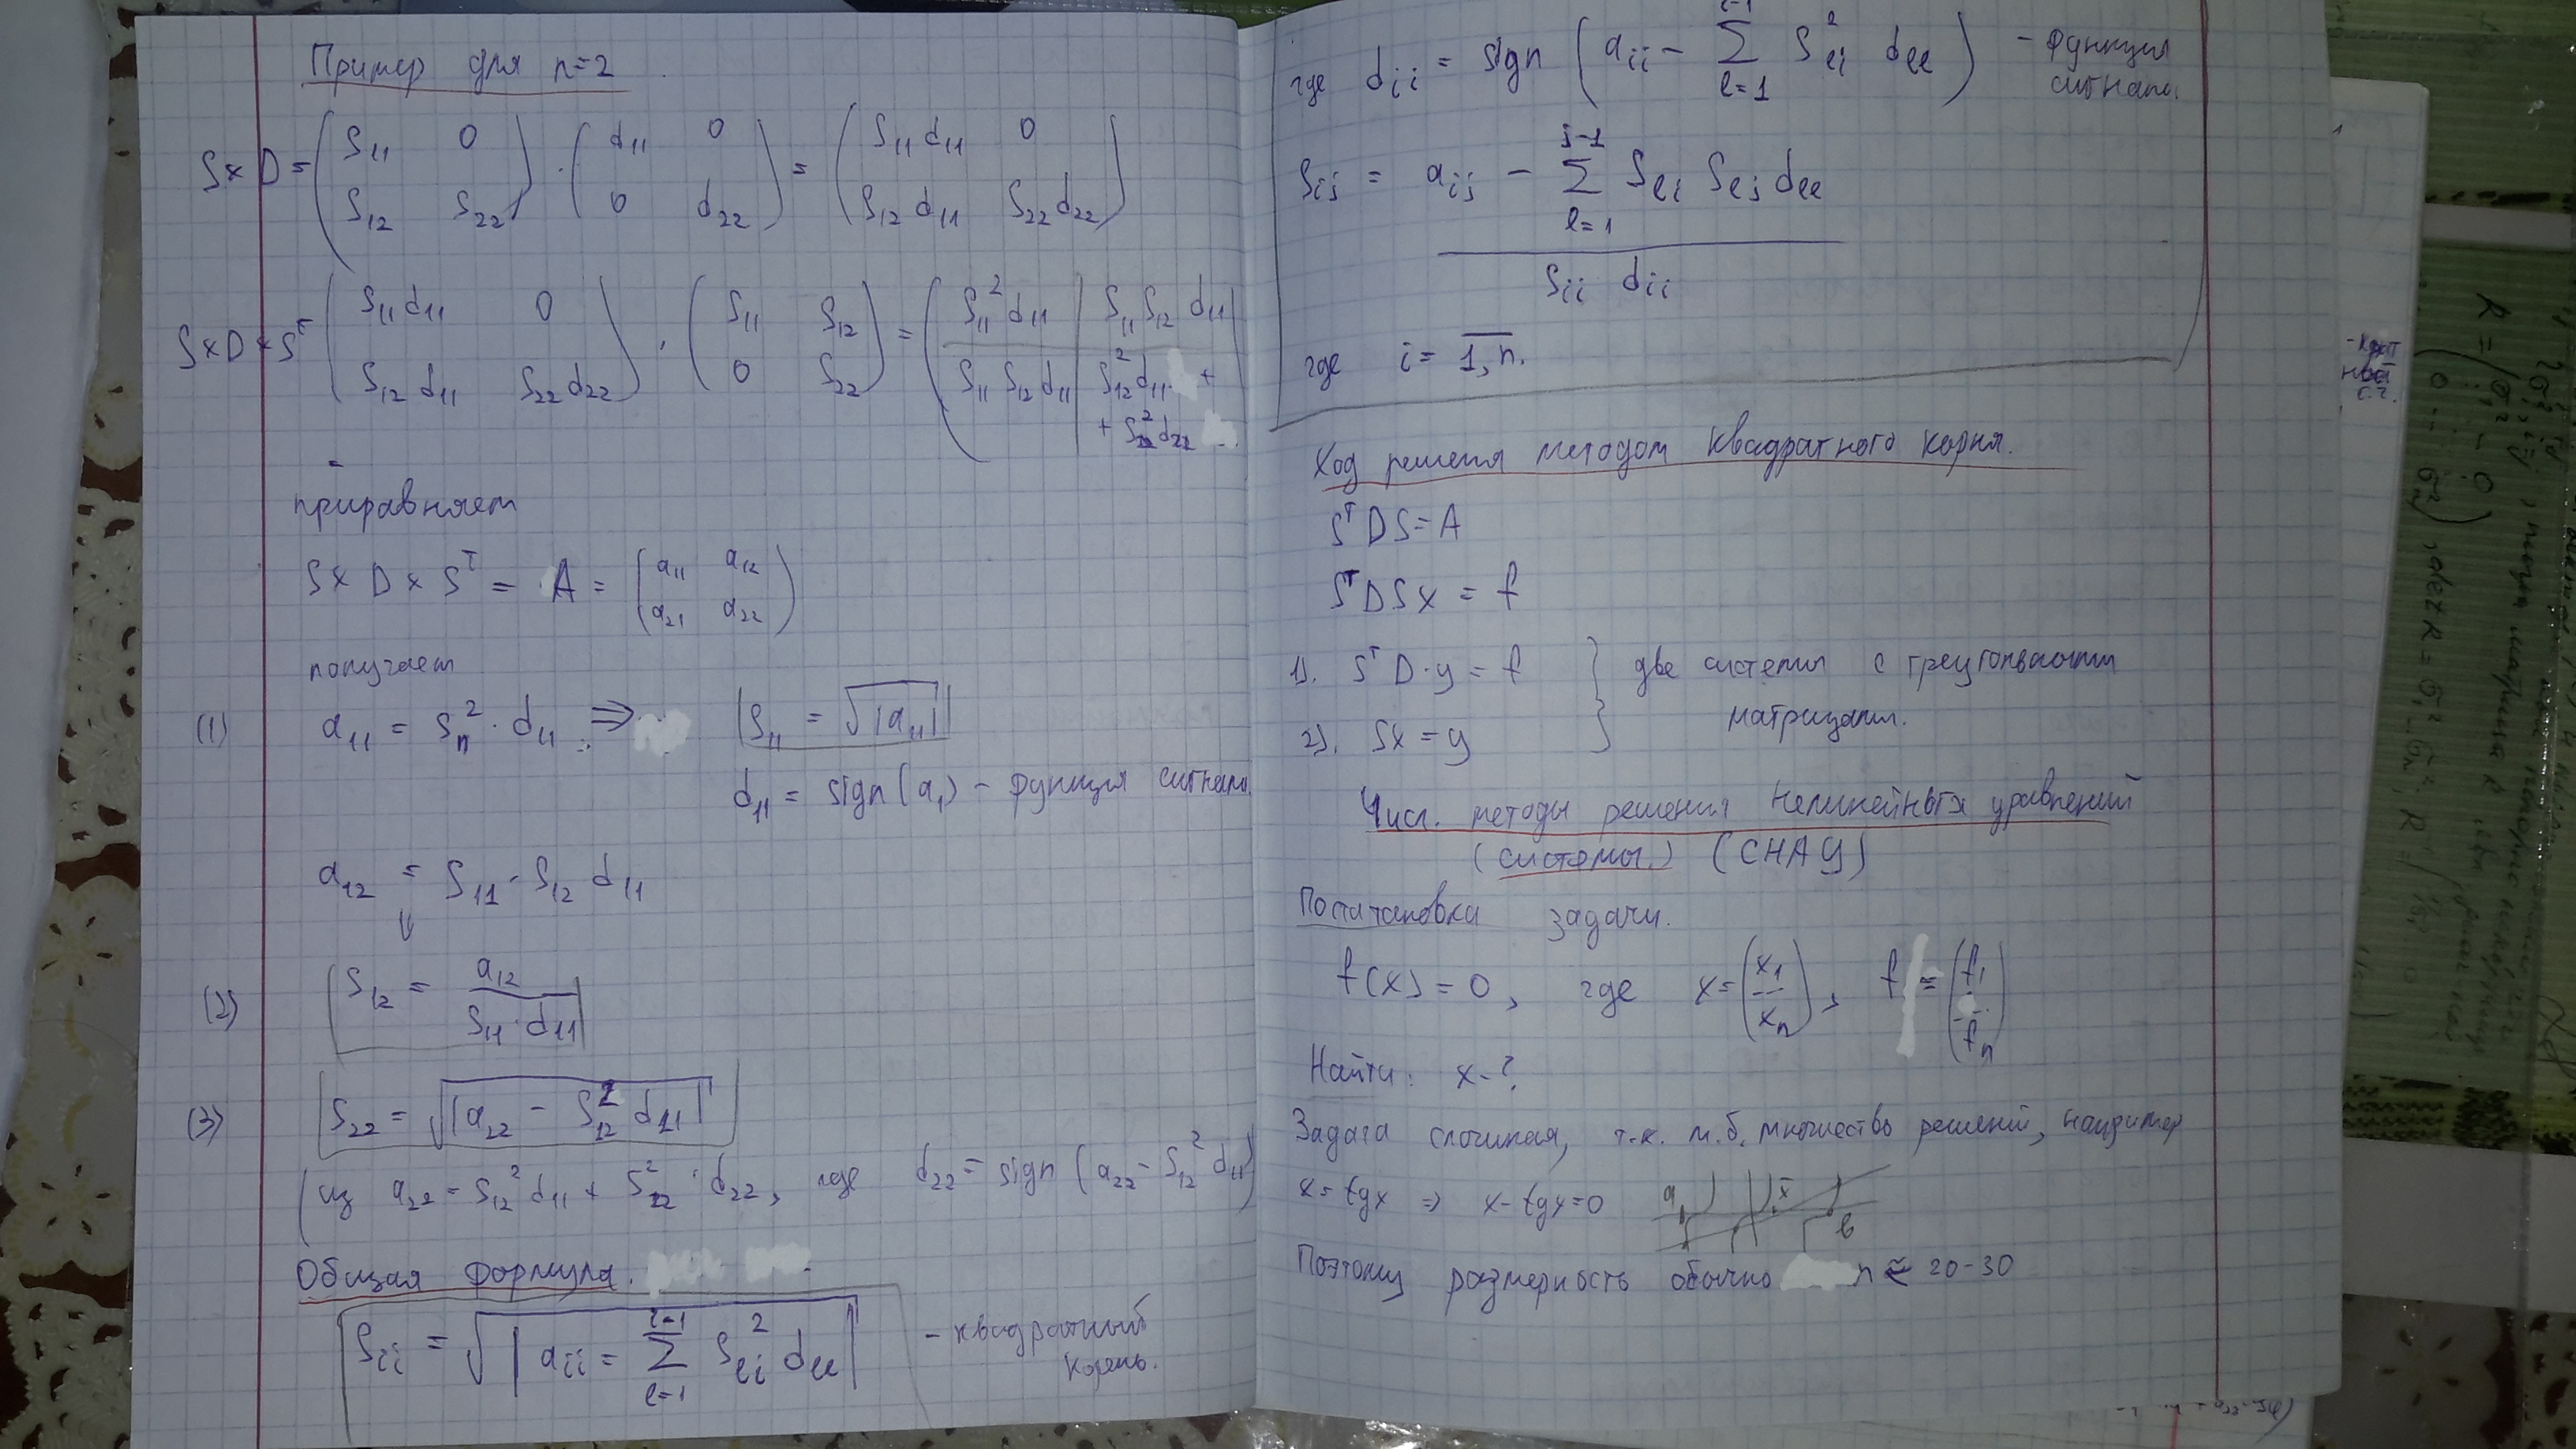 Пример для n=2
S×D = (S₁₁ 0; S₁₂ S₂₂) · (d₁₁ 0; 0 d₂₂) = (S₁₁d₁₁ 0; S₁₂d₁₁ S₂₂d₂₂)
S×D×Sᵀ (S₁₁d₁₁ 0; S₁₂d₁₁ S₂₂d₂₂) · (S₁₁ S₁₂; 0 S₂₂) = (S₁₁²d₁₁ S₁₁S₁₂d₁₁; S₁₁S₁₂d₁₁ S₁₂²d₁₁ + + S₂₂²d₂₂)
приравняем
S×D×Sᵀ = A = (a₁₁ a₁₂; a₂₁ a₂₂)
получаем
(1) a₁₁ = S₁₁² · d₁₁ ⇒ S₁₁ = √|a₁₁|
d₁₁ = sign(a₁) – функция сигнала
a₁₂ = S₁₁ · S₁₂ d₁₁
⇓
(2) S₁₂ = a₁₂ / (S₁₁ · d₁₁)
(3) S₂₂ = √|a₂₂ − S₁₂² d₁₁|
(из a₂₂ = S₁₂² d₁₁ + S₂₂² · d₂₂, где d₂₂ = sign(a₂₂ − S₁₂² d₁₁)
Общая формула.
Sᵢᵢ = √|aᵢᵢ = ∑_{l=1}^{i−1} Sₗᵢ² dₗₗ| – квадратный
корень.
где dᵢᵢ = sign (aᵢᵢ − ∑_{l=1}^{i−1} Sₗᵢ² dₗₗ) – функция
сигнала.
Sᵢⱼ = aᵢⱼ − ∑_{l=1}^{j−1} Sₗᵢ Sₗⱼ dₗₗ
Sᵢᵢ dᵢᵢ
где i = 1,n.
Ход решеня методом квадратного корня.
SᵀDS = A
SᵀDSx = f
1). SᵀD·y = f } две системы с треугольными
2). Sx = y } матрицами.
Числ. методы решения нелинейных уравнений
(системы.) (СНАУ)
Постатановка задачи.
f(x) = 0, где x = (x₁ --- xₙ), f = (f₁ --- fₙ)
Найти: x-?
Задача сложная, т.к. м.б. множество решений, например
x = tgx ⇒ x−tgx=0 a x̄ b
Поэтому размерность обычно n ≈ 20-30